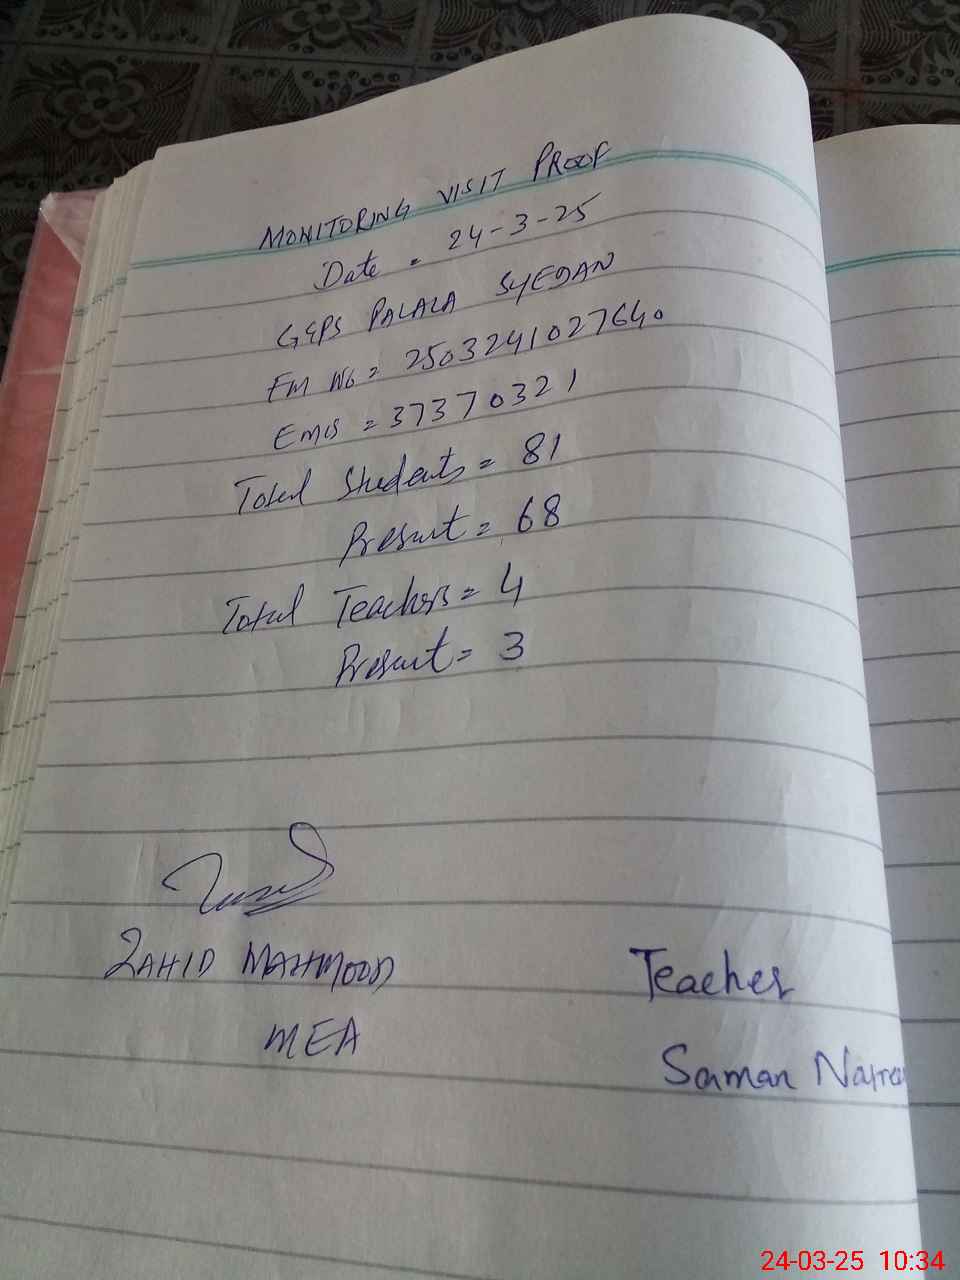 MONITORING VISIT PROOF
Date = 24-3-25
GGPS PALALA SYEDAN
FM No = 2503241027640
Emis = 37370321
Total Students = 81
Present = 68
Total Teachers = 4
Present = 3
ZAHID MAHMOOD
MEA
Teacher
Saman
24-03-25 10:34